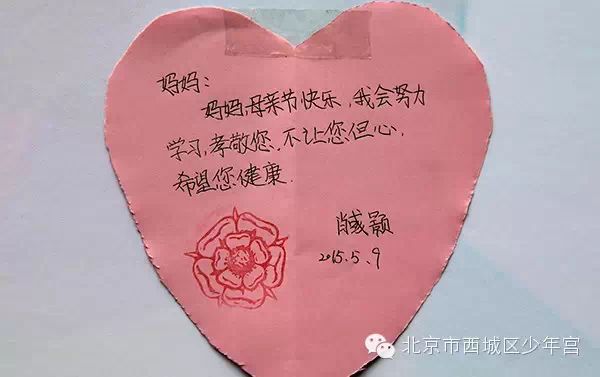 妈妈：
妈妈，母亲节快乐，我会努力
学习，孝敬您，不让您但心，
希望您健康.
2015.5.9
北京市西城区少年宫